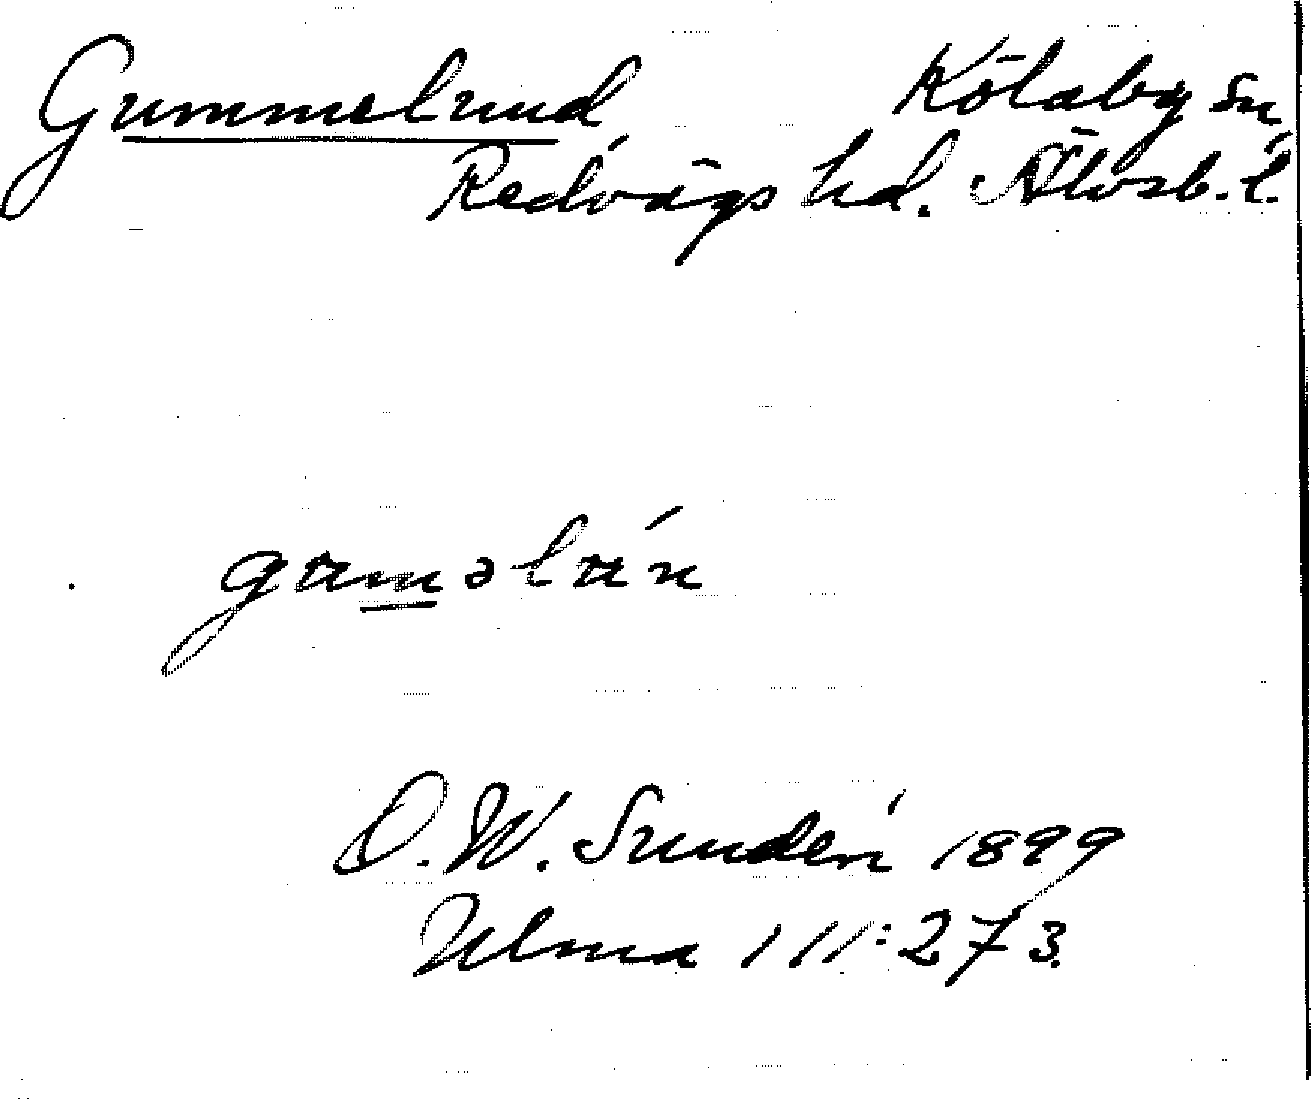 Gummelund Kölaby sn,
Redvägs hd. Älvsb. l.
gɯməlɯ́n
O. W. Sundén 1899
Ulma 111:273.